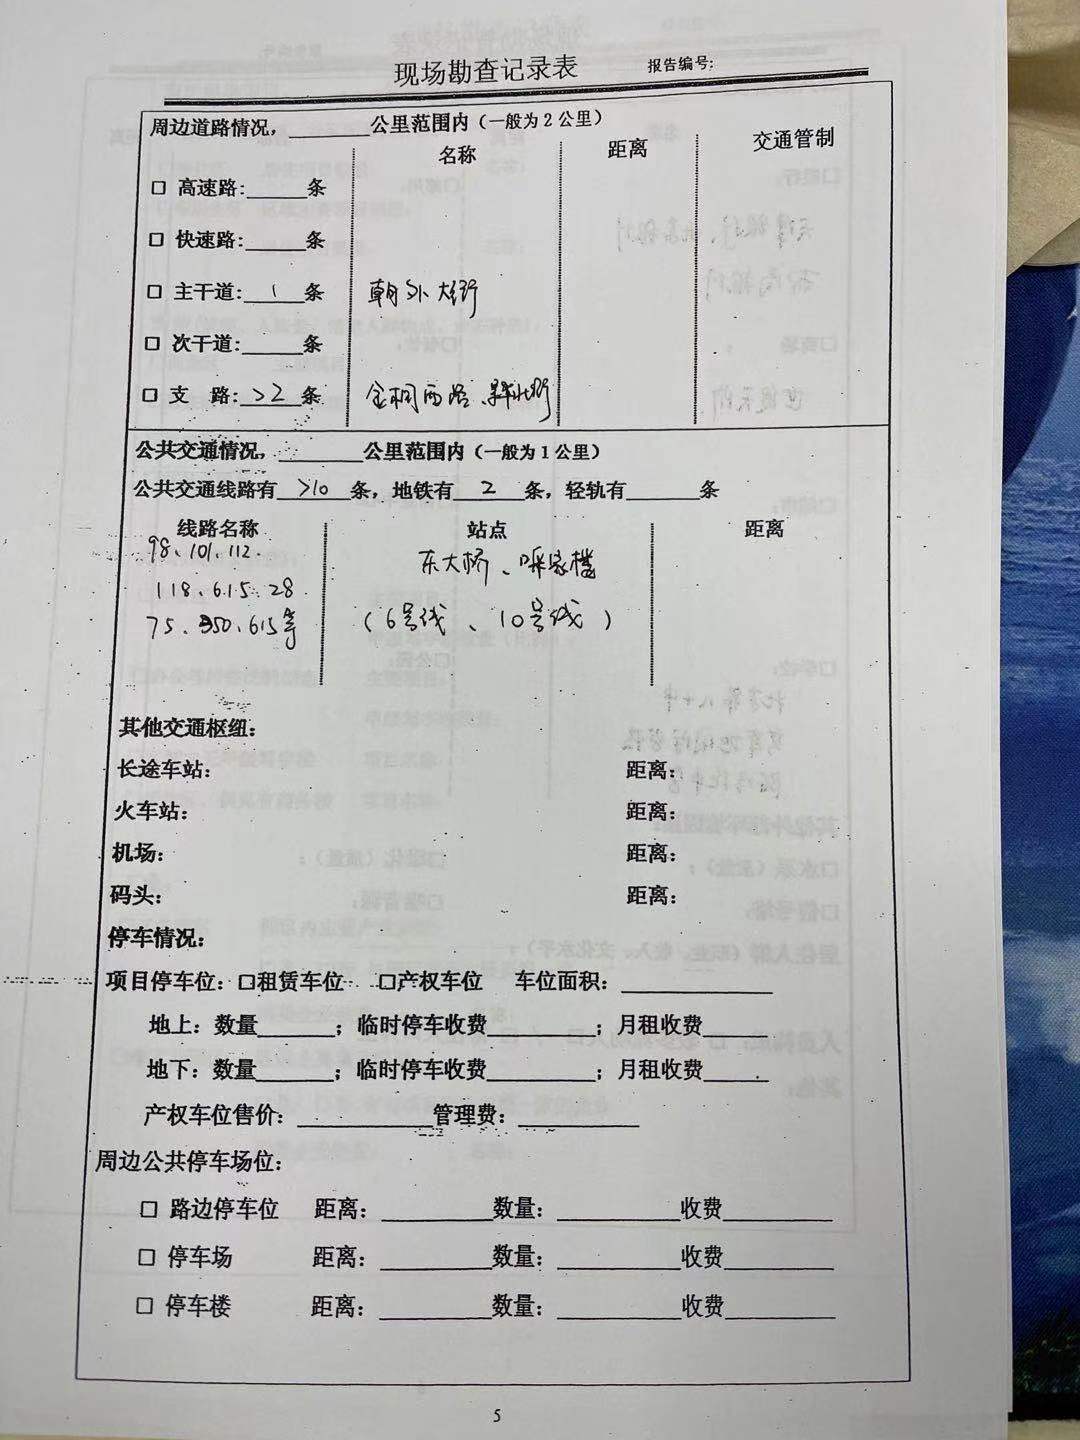 现场勘查记录表 报告编号:
周边道路情况，______公里范围内（一般为2公里）
名称 距离 交通管制
□ 高速路:_____条
□ 快速路:_____条
□ 主干道: 1 条 朝外大街
□ 次干道:_____条
□ 支 路: >2 条 金桐西路、
公共交通情况，______公里范围内（一般为1公里）
公共交通线路有 >10 条，地铁有 2 条，轻轨有______条
线路名称 站点 距离
98、101、112、 东大桥、呼家楼
118、615、28
75、350、615等 （6号线、10号线）
其他交通枢纽：
长途车站： 距离：
火车站： 距离：
机场： 距离：
码头： 距离：
停车情况：
项目停车位：□租赁车位 □产权车位 车位面积：____________
地上：数量______；临时停车收费_________；月租收费_____
地下：数量______；临时停车收费_________；月租收费_____
产权车位售价：___________管理费：__________
周边公共停车场位：
□ 路边停车位 距离：_________数量：__________收费_________
□ 停车场 距离：_________数量：__________收费_________
□ 停车楼 距离：_________数量：__________收费_________
5